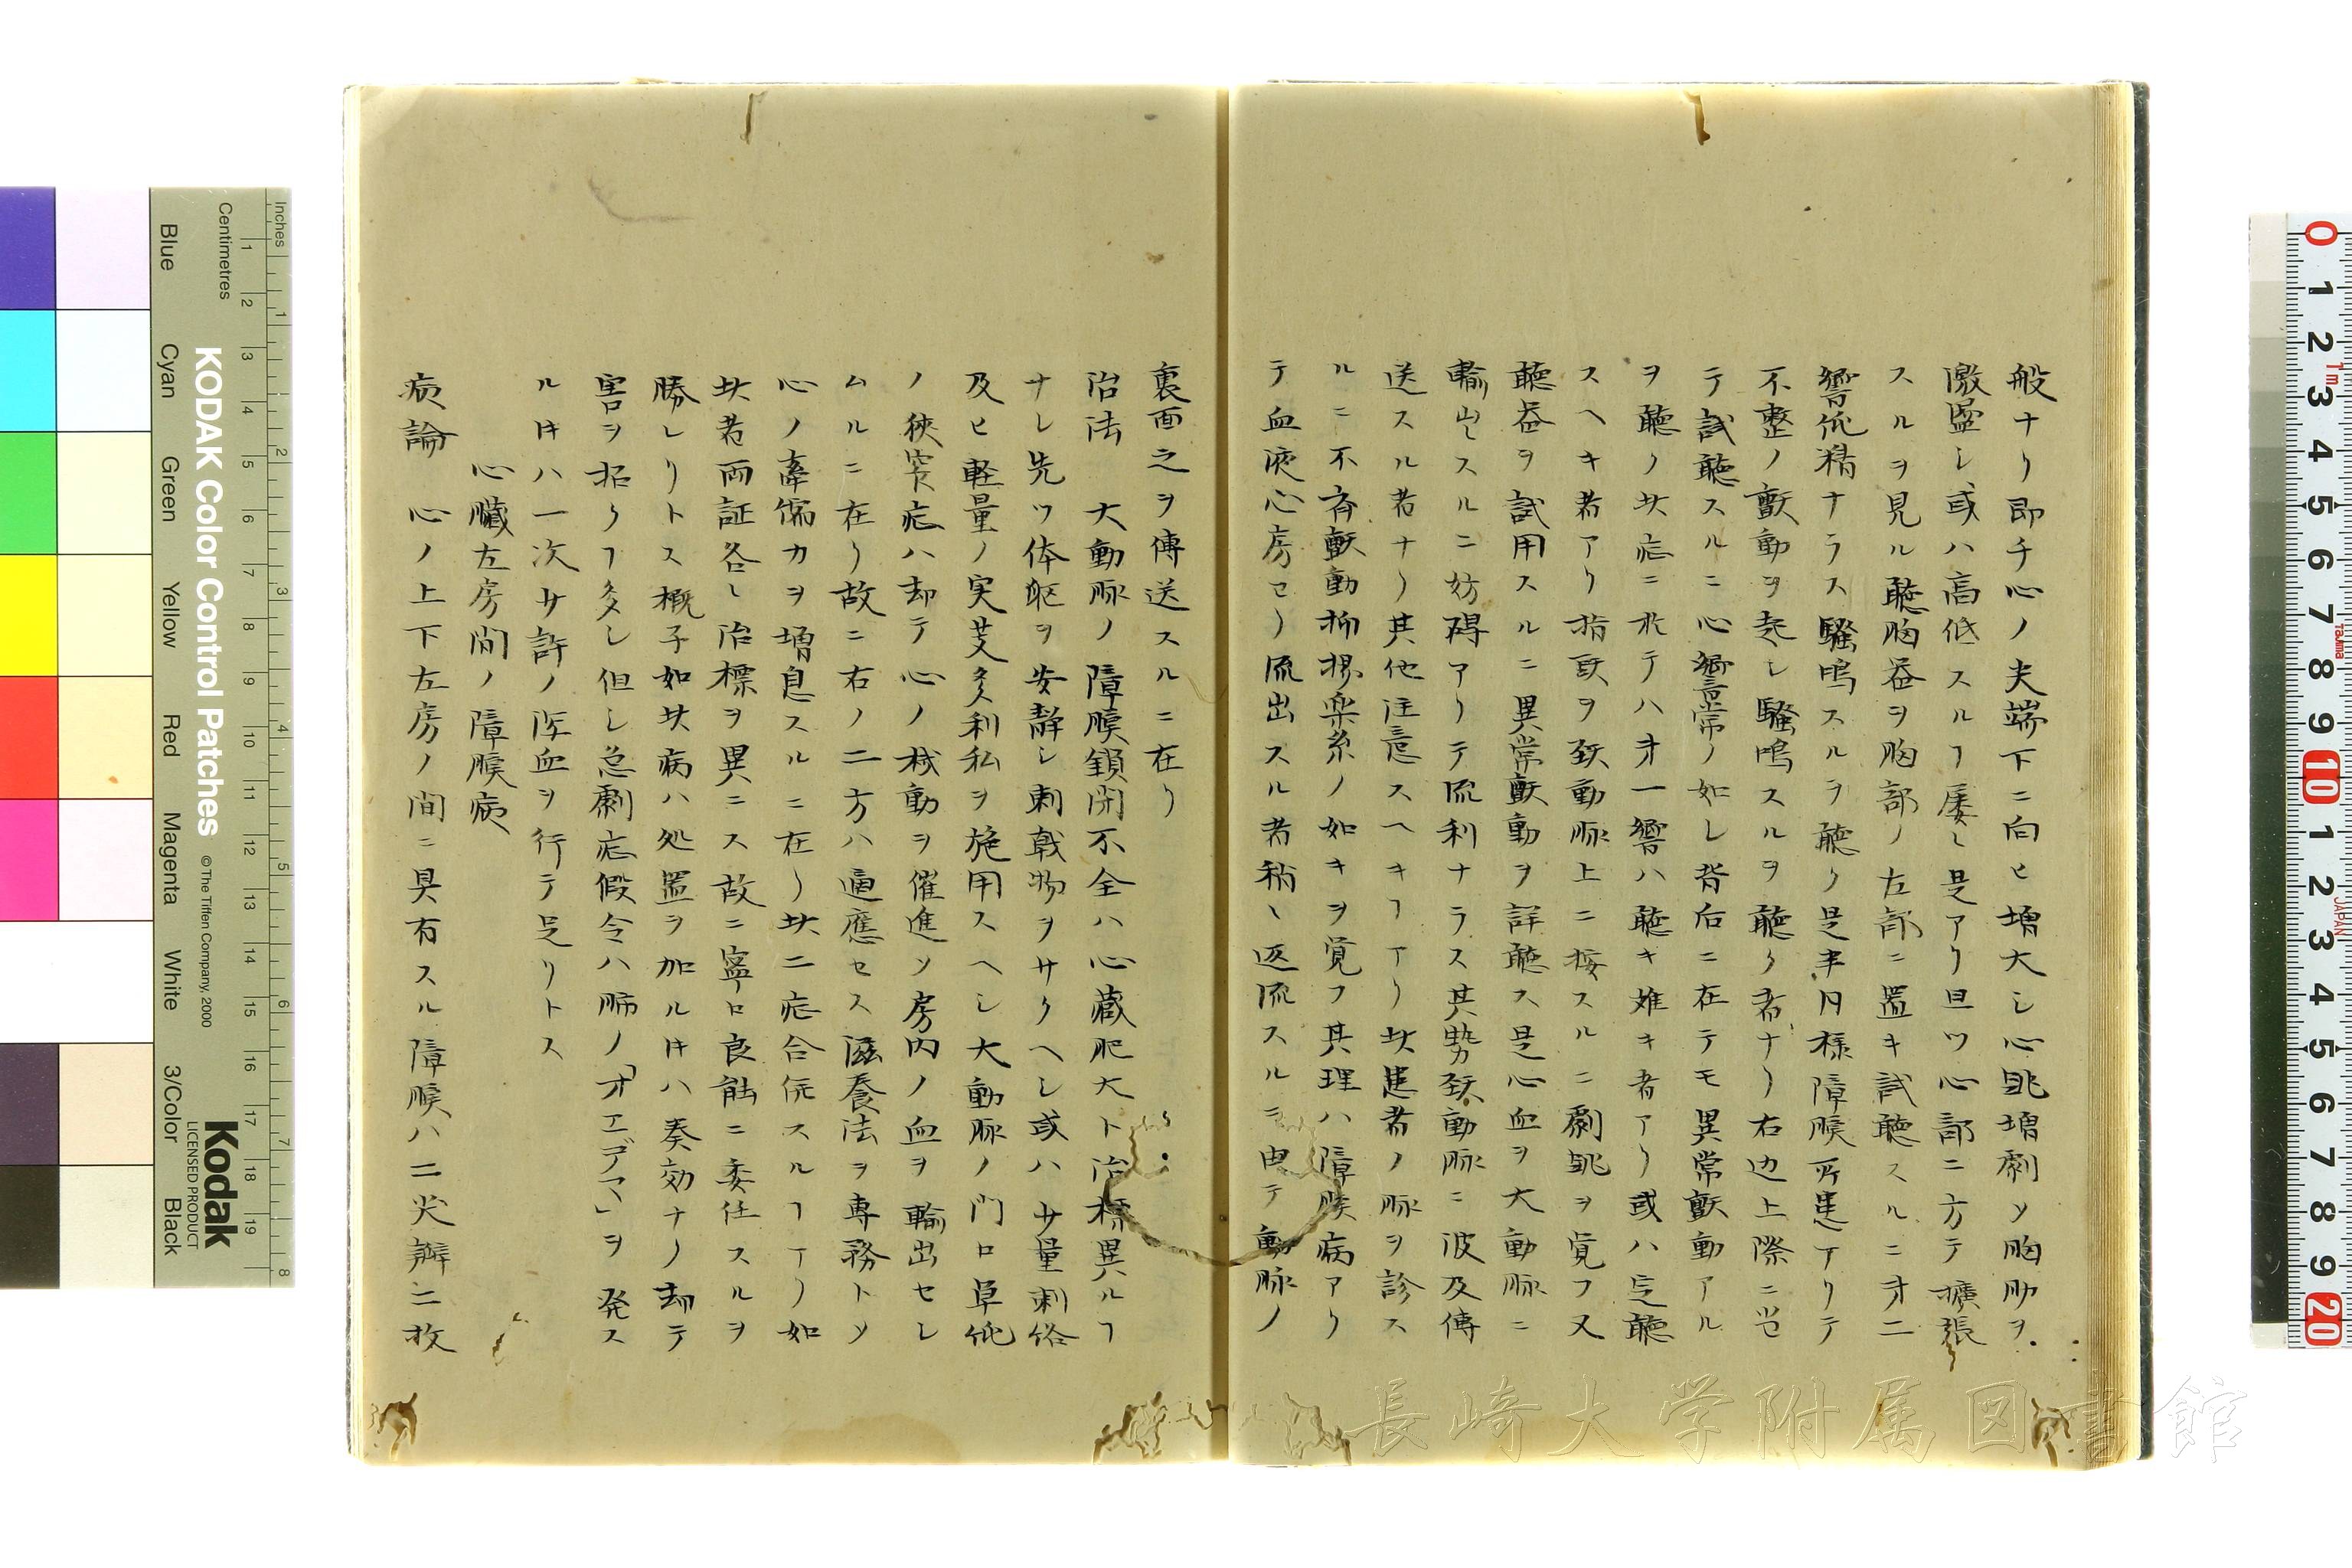 般ナリ即チ心ノ尖端下ニ向ヒ増大シ心跳増劇ソ胸肋ヲ
激盪シ或ハ高低スルヿ屡〻是アリ且ツ心部ニ方テ擴張
スルヲ見ル聴胸器ヲ胸部ノ左部ニ置キ試聴スルニ才二
響侂精ナラス騒鳴スルヲ聴ク是半月様障膜所患アリテ
不整ノ顫動ヲ起シ騒鳴スルヲ聴ク者ナリ右辺上際ニ當
テ試聴スルニ心響常ノ如シ背后ニ在テモ異常顫動アル
ヲ聴ク此症ニ於テハ才一響ハ聴キ難キ者アリ或ハ定聴
スヘキ者アリ指頭ヲ頚動脈上ニ按スルニ劇跳ヲ覚フ又
聴器ヲ試用スルニ異常顫動ヲ詳聴ス是心血ヲ大動脈ニ
輸出スルニ妨碍アリテ流利ナラス其勢頚動脈ニ波及傳
送スル者ナリ其他注意スヘキヿアリ此患者ノ脈ヲ診ス
ルニ不斉顫動抑揚楽糸ノ如キヲ覚フ其理ハ障膜病アリ
テ血液心房ヨリ流出スル者稍〻返流スルニ由テ動脈ノ
裏面之ヲ傳送スルニ在リ
治法　大動脈ノ障膜鎖閉不全ハ心蔵肥大ト治標異ルヿ
ナシ先ツ体躯ヲ安静シ刺戟物ヲサクヘシ或ハ少量刺絡
及ヒ軽量ノ実芰多利私ヲ施用スヘシ大動脈ノ門口単侂
ノ狭窄症ハ却テ心ノ械動ヲ催進ソ房内ノ血ヲ輸出セシ
ムルニ在リ故ニ右ノ二方ハ適應セス滋養法ヲ専務トソ
心ノ牽縮力ヲ増息スルニ在リ此二症合併スルヿアリ如
此者両証各〻治標ヲ異ニス故ニ寧ロ良能ニ委任スルヲ
勝レリトス概子如此病ハ処置ヲ加ルㇰハ奏効ナク却テ
害ヲ招クヿ多シ但シ急劇症假令ハ肺ノ「オエデアマ」ヲ発ス
ルㇰハ一次少許ノ瀉血ヲ行テ足リトス
心臓左房間ノ障膜病
病論　心ノ上下左房ノ間ニ具有スル障膜ハ二尖瓣二枚
長崎大学附属図書館
KODAK Color Control Patches
© The Tiffen Company, 2000
Kodak
LICENSED PRODUCT
Inches
Centimetres
Blue
Cyan
Green
Yellow
Red
Magenta
White
3/Color
Black